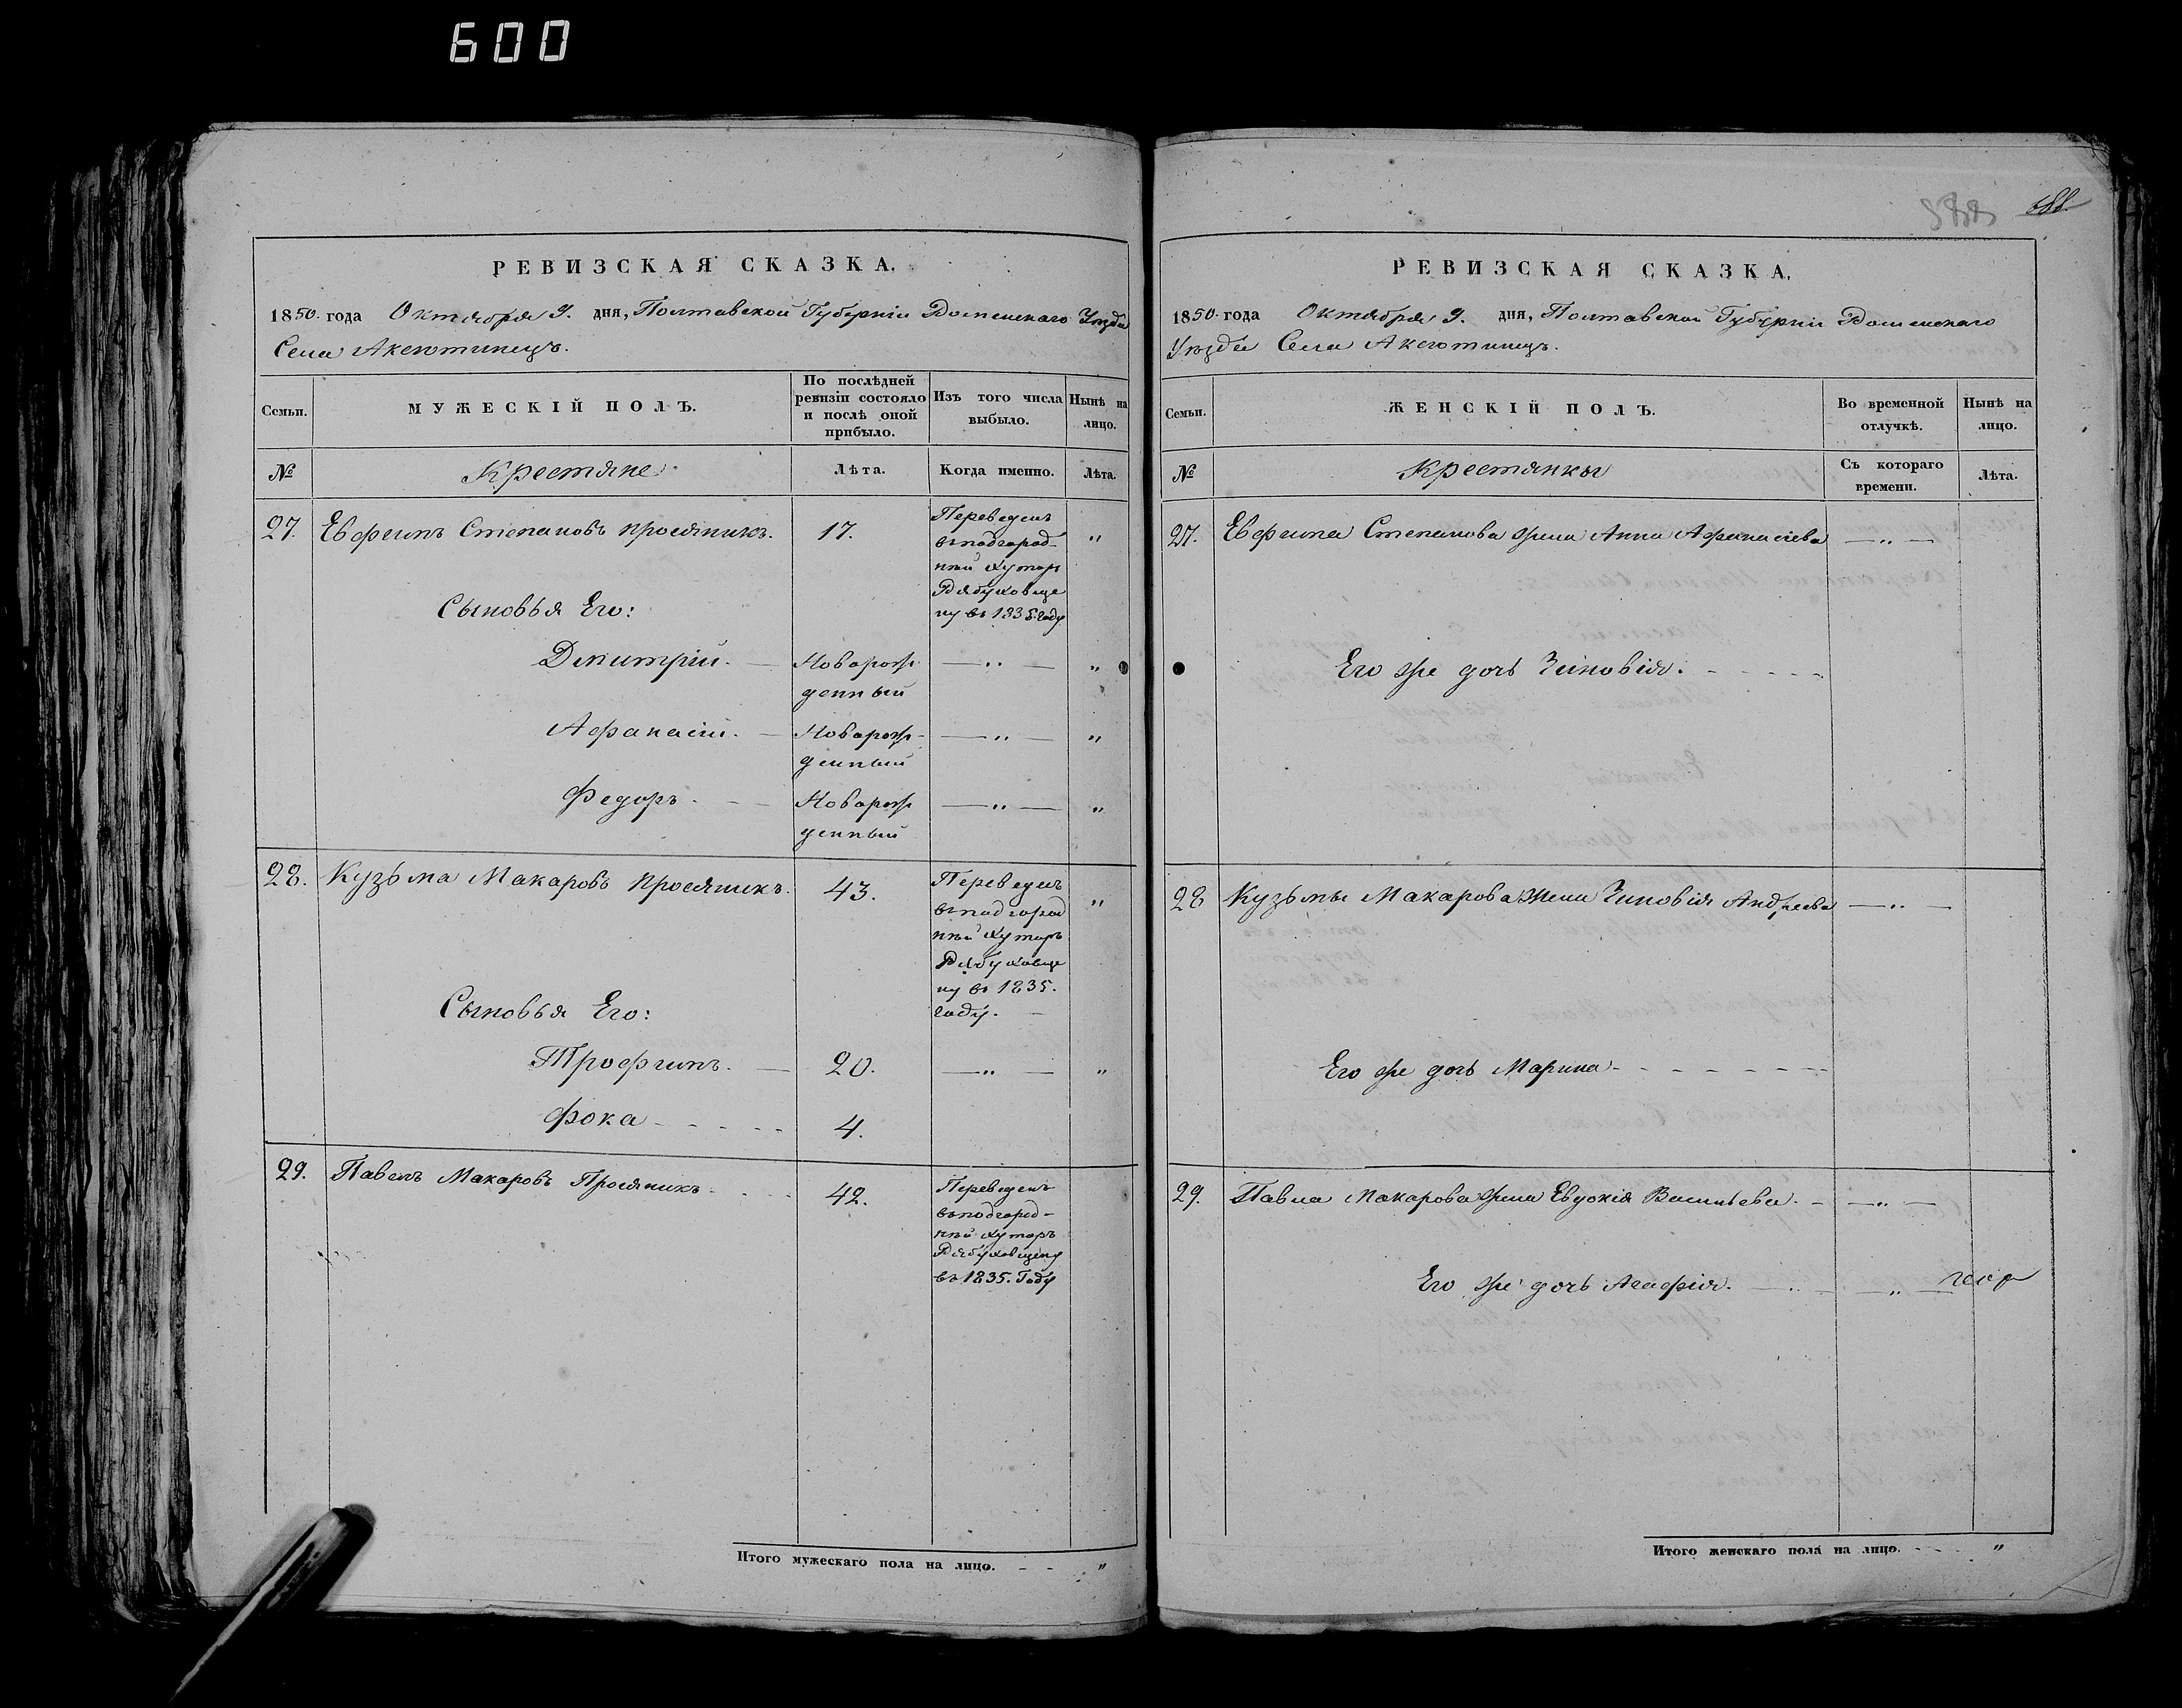 600
588
РЕВИЗСКАЯ СКАЗКА.
1850. года Октября 9. дня, Полтавской Губерніи Роменскаго Уѣзда
Села Аксютинецъ.
Семьи. МУЖЕСКІЙ ПОЛЪ. По послѣдней ревизіи состояло и послѣ оной прибыло. Изъ того числа выбыло. Нынѣ на лицо.
№ Крестяне Лѣта. Когда именно. Лѣта.
27. Евфимъ Степановъ Просяникъ. 17. Переведенъ "
въ подгород-
ний Хуторъ
Рябуховще
ну въ 1835 году
Сыновья Его:
Дмитрій. —Новорож — " — "
денный
Афанасій. — Новорож- — " — "
денный
Федоръ. — Новорож — " — "
денный
28. Кузьма Макаровъ Просяникъ. 43. Переведенъ "
въ подгород
ний Хуторъ
Рябуховще
ну въ 1835.
году.
Сыновья Его:
Трофимъ. — 20. — " — "
Фока - - - - - 4.
29. Павелъ Макаровъ Просяникъ - - - 42. Переведенъ
въ подгород-
ний Хуторъ
Рябуховщену
въ 1835. Году
Итого мужескаго пола на лицо. - - "
РЕВИЗСКАЯ СКАЗКА.
1850. года Октября 9. дня, Полтавской Губерніи Роменскаго
Уѣзда Села Аксютинецъ.
Семьи. ЖЕНСКІЙ ПОЛЪ. Во временной отлучкѣ. Нынѣ на лицо.
№ Крестянки Съ котораго времени. Лѣта.
27. Евфима Степанова жена Анна Афанасіева — " —
Его же дочь Зиновія. - - - - -
28 Кузьмы Макарова жена Зиновія Андреева — " —
Его же дочь Марина - - - - - - -
29. Павла Макарова жена Евдокія Васильева. - — " —
Его же дочь Агафія. — " — — " —
Итого женскаго пола на лицо. - - - "